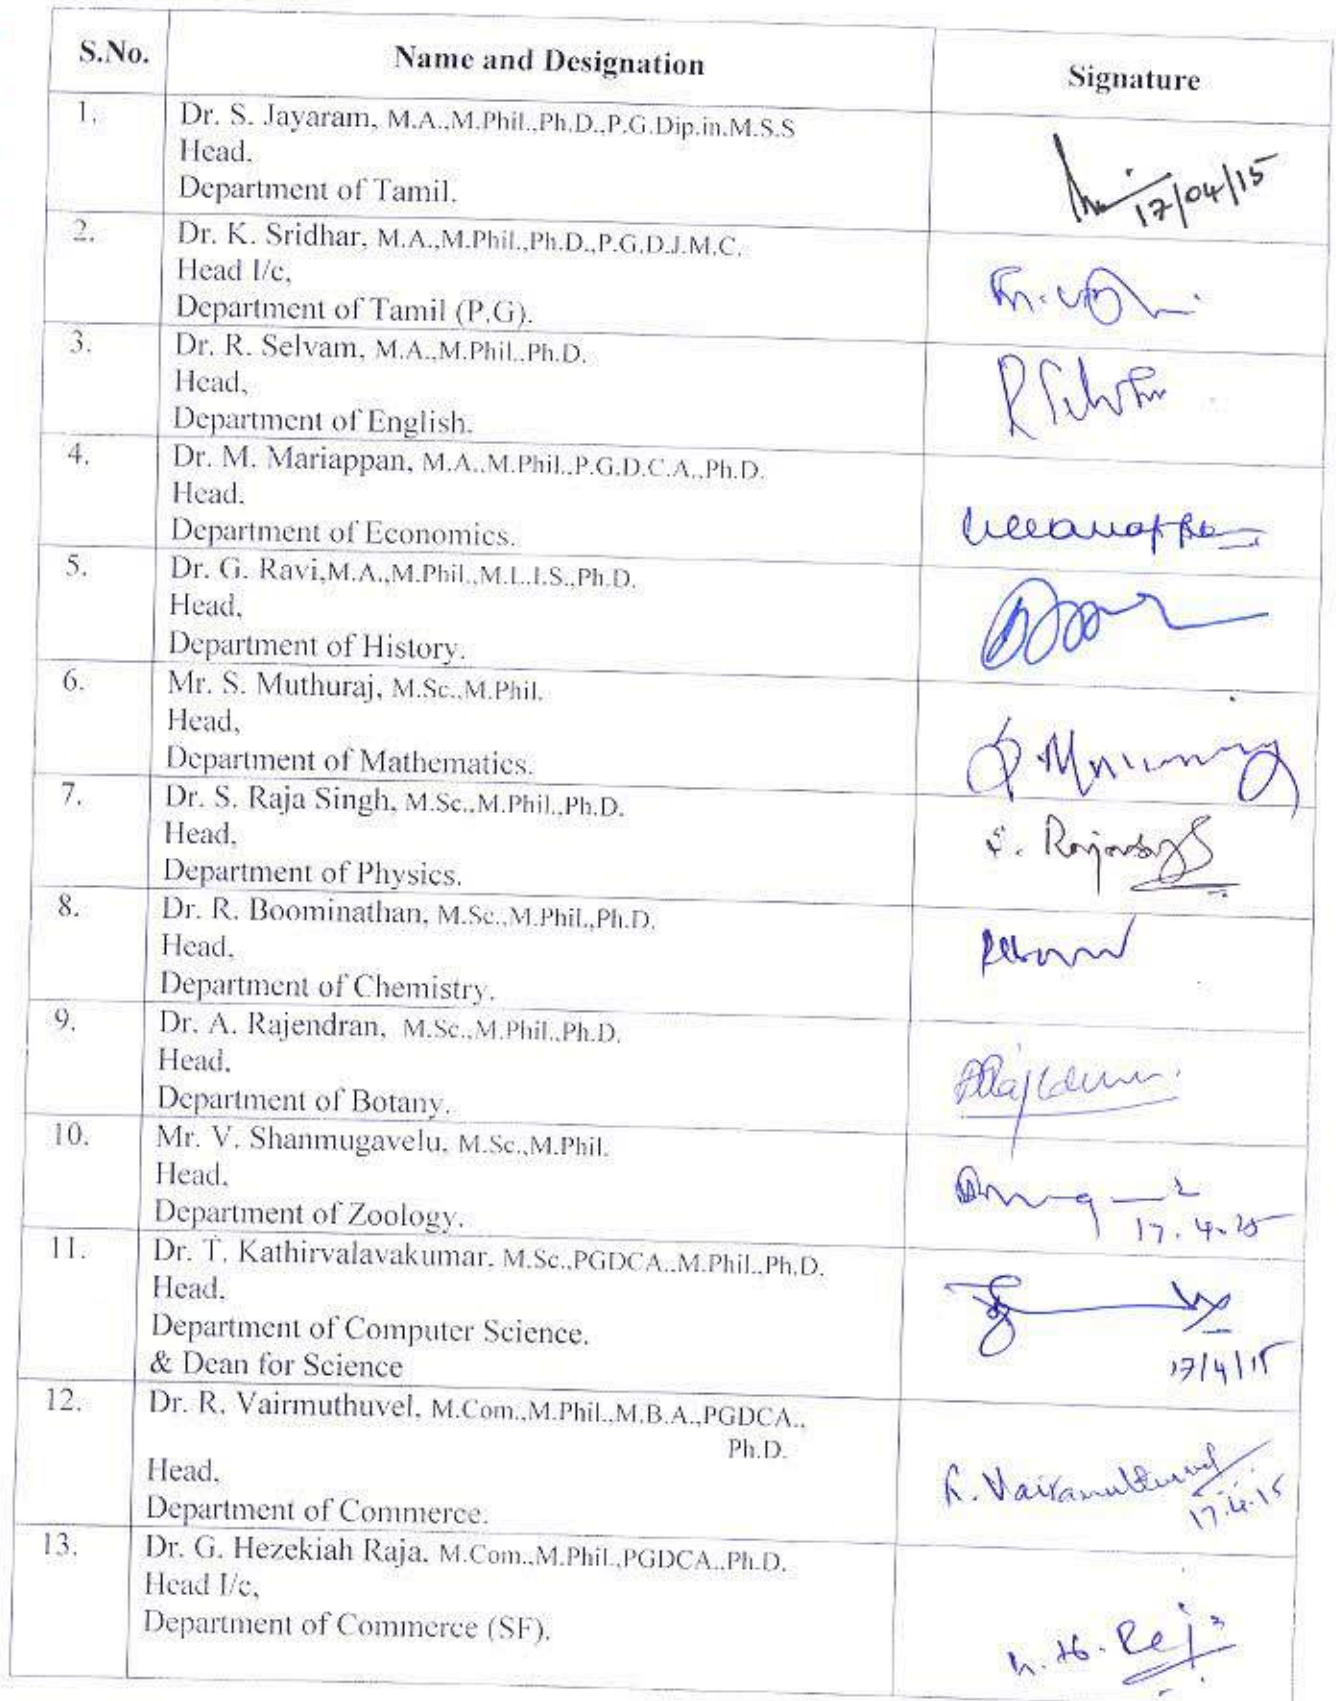 S.No. Name and Designation Signature
1. Dr. S. Jayaram, M.A.,M.Phil.,Ph.D.,P.G.Dip.in.M.S.S
Head.
Department of Tamil.
17/04/15
2. Dr. K. Sridhar, M.A.,M.Phil.,Ph.D.,P.G.D.J.M.C.
Head I/c,
Department of Tamil (P.G).
3. Dr. R. Selvam, M.A.,M.Phil.,Ph.D.
Head,
Department of English.
4. Dr. M. Mariappan, M.A.,M.Phil.,P.G.D.C.A.,Ph.D.
Head.
Department of Economics.
5. Dr. G. Ravi,M.A.,M.Phil.,M.L.I.S.,Ph.D.
Head,
Department of History.
6. Mr. S. Muthuraj, M.Sc.,M.Phil.
Head,
Department of Mathematics.
7. Dr. S. Raja Singh, M.Sc.,M.Phil.,Ph.D.
Head,
Department of Physics.
8. Dr. R. Boominathan, M.Sc.,M.Phil.,Ph.D.
Head.
Department of Chemistry.
9. Dr. A. Rajendran, M.Sc.,M.Phil.,Ph.D.
Head.
Department of Botany.
10. Mr. V. Shanmugavelu, M.Sc.,M.Phil.
Head.
Department of Zoology.
17.4.15
11. Dr. T. Kathirvalavakumar, M.Sc.,PGDCA.,M.Phil.,Ph.D.
Head.
Department of Computer Science.
& Dean for Science
17/4/15
12. Dr. R. Vairmuthuvel, M.Com.,M.Phil.,M.B.A.,PGDCA.,
Ph.D.
Head.
R. Vairamuthuvel
Department of Commerce.
17.4.15
13. Dr. G. Hezekiah Raja, M.Com.,M.Phil.,PGDCA.,Ph.D.
Head I/c,
Department of Commerce (SF).